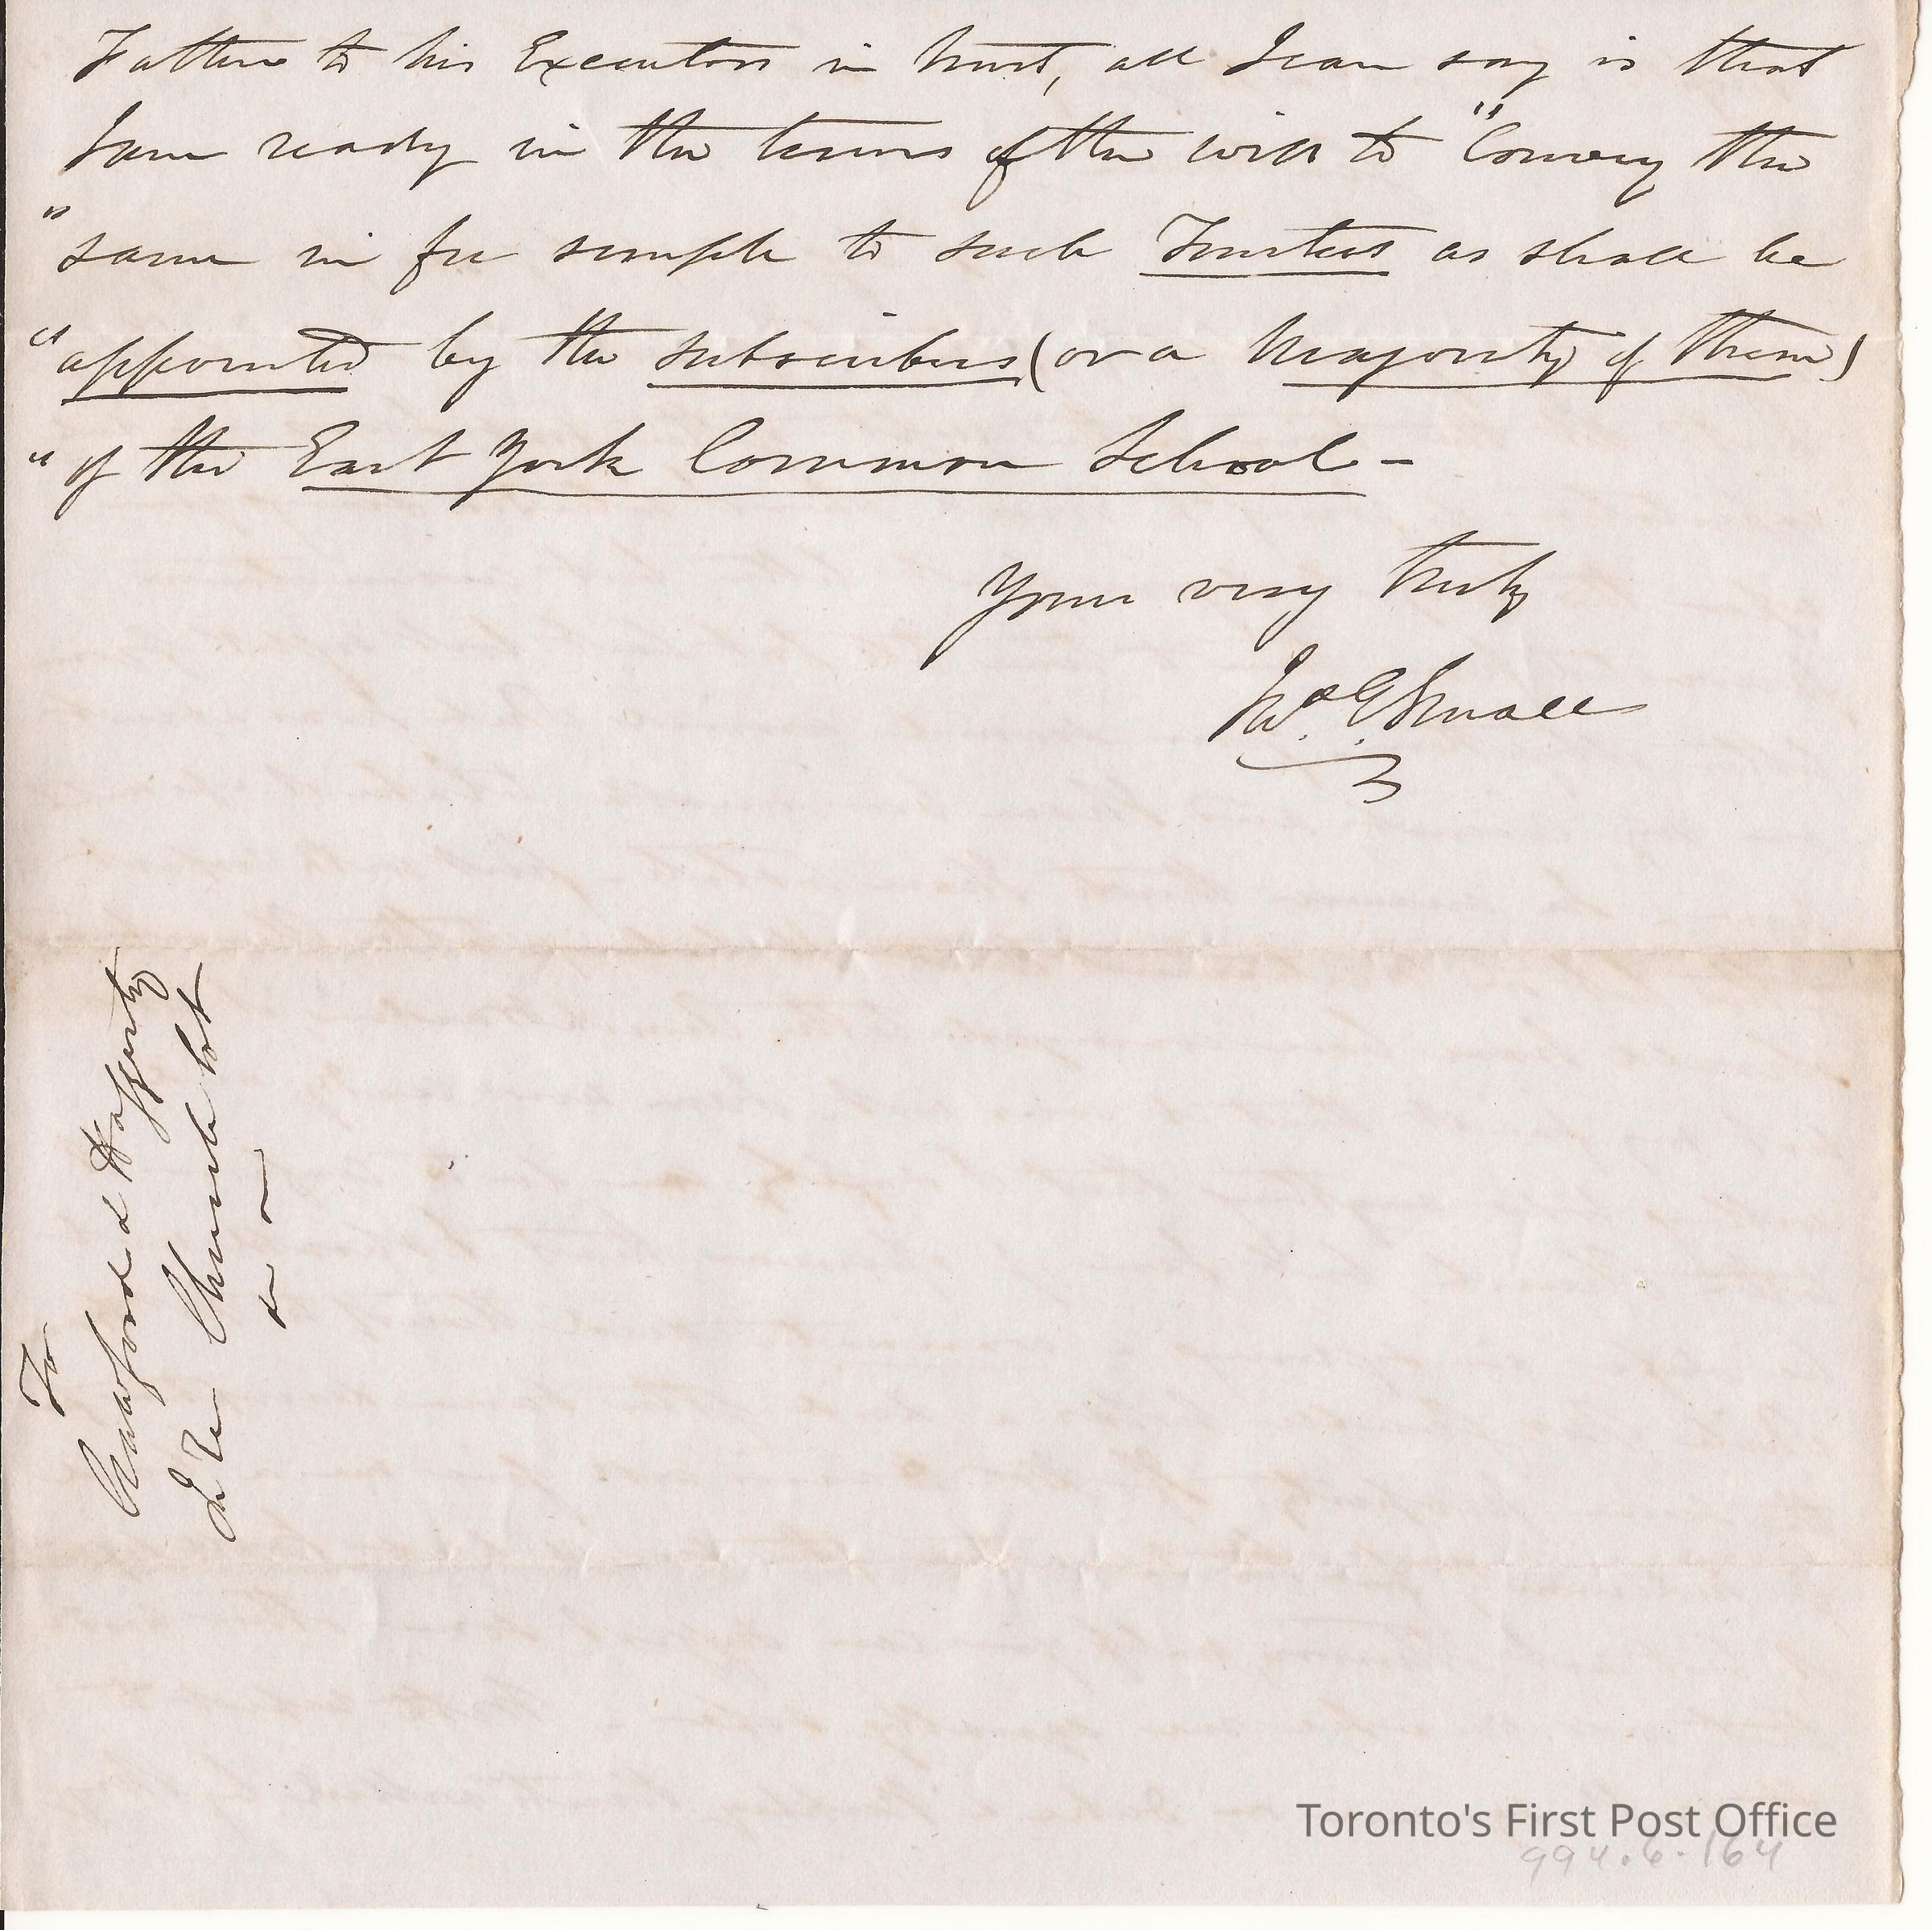 Father to his Executors in trust, all I can say is that
I am ready in the terms of the will to "Convey the
"same in fee simple to such Trustees as shall be
"appointed by the subscribers (or a Majority of them)
"of the East York Common School -
Yours very truly
Jno. G. Small
To
Crawford & Hagerty
In re Church lot
994.6.164
Toronto's First Post Office